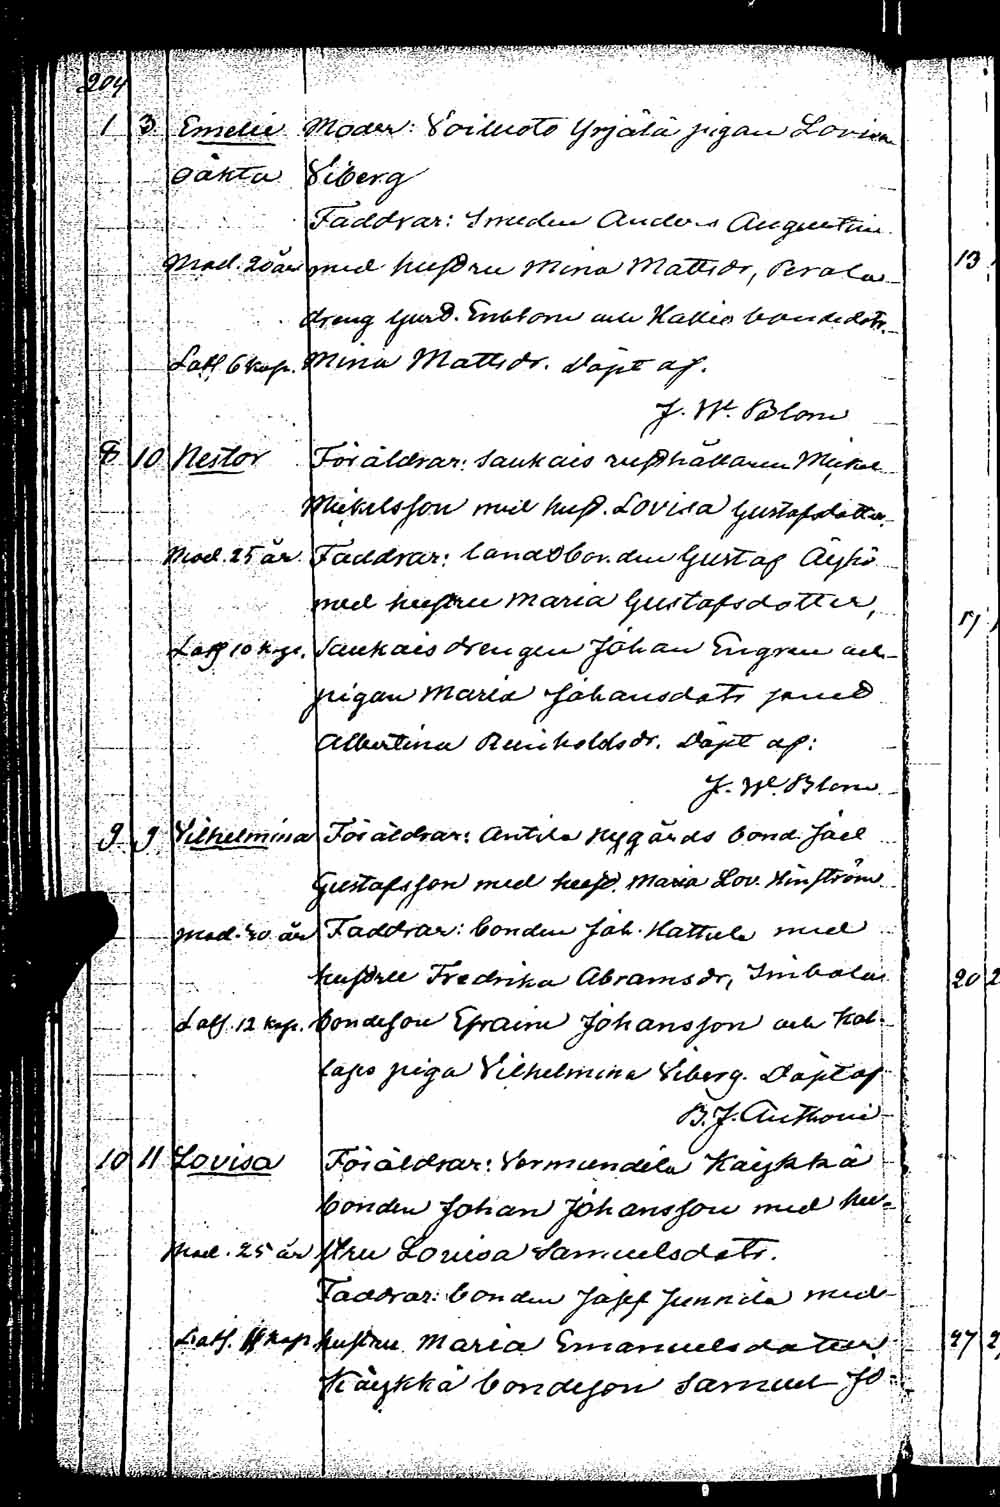 204
1 3 Emelie Moder: Voiluoto Yrjälä pigan Lovisa
oäkta Viberg
Faddrar: Smeden Anders Augustin
Mod. 20 år med hustru Mina Mattsdr, Perala
dreng Gust. Enblom och Hakio bondedotr.
Laf. 6 kap. Mina Mattsdr. Döpt af.
J. W. Blom
8 10 Nestor Föräldrar: Saukais rusthållaren Mickel
Mickelsson med hust. Lovisa Gustafsdotter
Mod. 25 år Faddrar: landbonden Gustaf Äyhö
med hustru Maria Gustafsdotter,
Laf. 10 kap. Saukais drengen Johan Engren och
pigan Maria Johansdotr samt
Albertina Reinholdsdr. Döpt af:
J. W. Blom
9 9 Vilhelmina Föräldrar: Antila Nygårds bond. Joel
Gustafsson med hust. Maria Lov. Hinström
Mod. år Faddrar: bonden Joh. Hattula med
hustru Fredrika Abramsdr,
Laf. 12 kap. bondeson Efraim Johansson och Kol-
laps piga Vilhelmina Viberg. Döpt af
B. J. Anthoni
10 11 Lovisa Föräldrar: Vermundila Käykkä
bonden Johan Johansson med hu-
Mod. 25 år stru Lovisa Samuelsdotr.
Faddrar: bonden Josef Junnila med
Laf. 11 kap. hustru Maria Emanuelsdotter
Käykkä bondeson Samuel Jo-
13
17
20 2
27 2